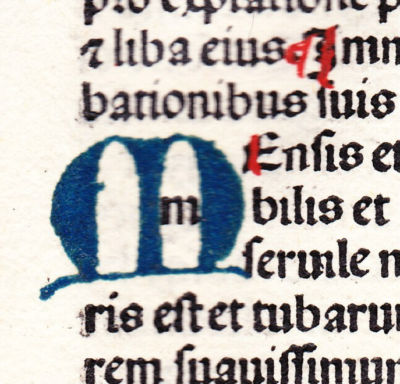 pro expiatione p
⁊ liba eius Imm
bationibus ſuis
MEnſis et
m bilis et
ſeruile n
ris eſt et tubaru
rem ſuauiſſimu